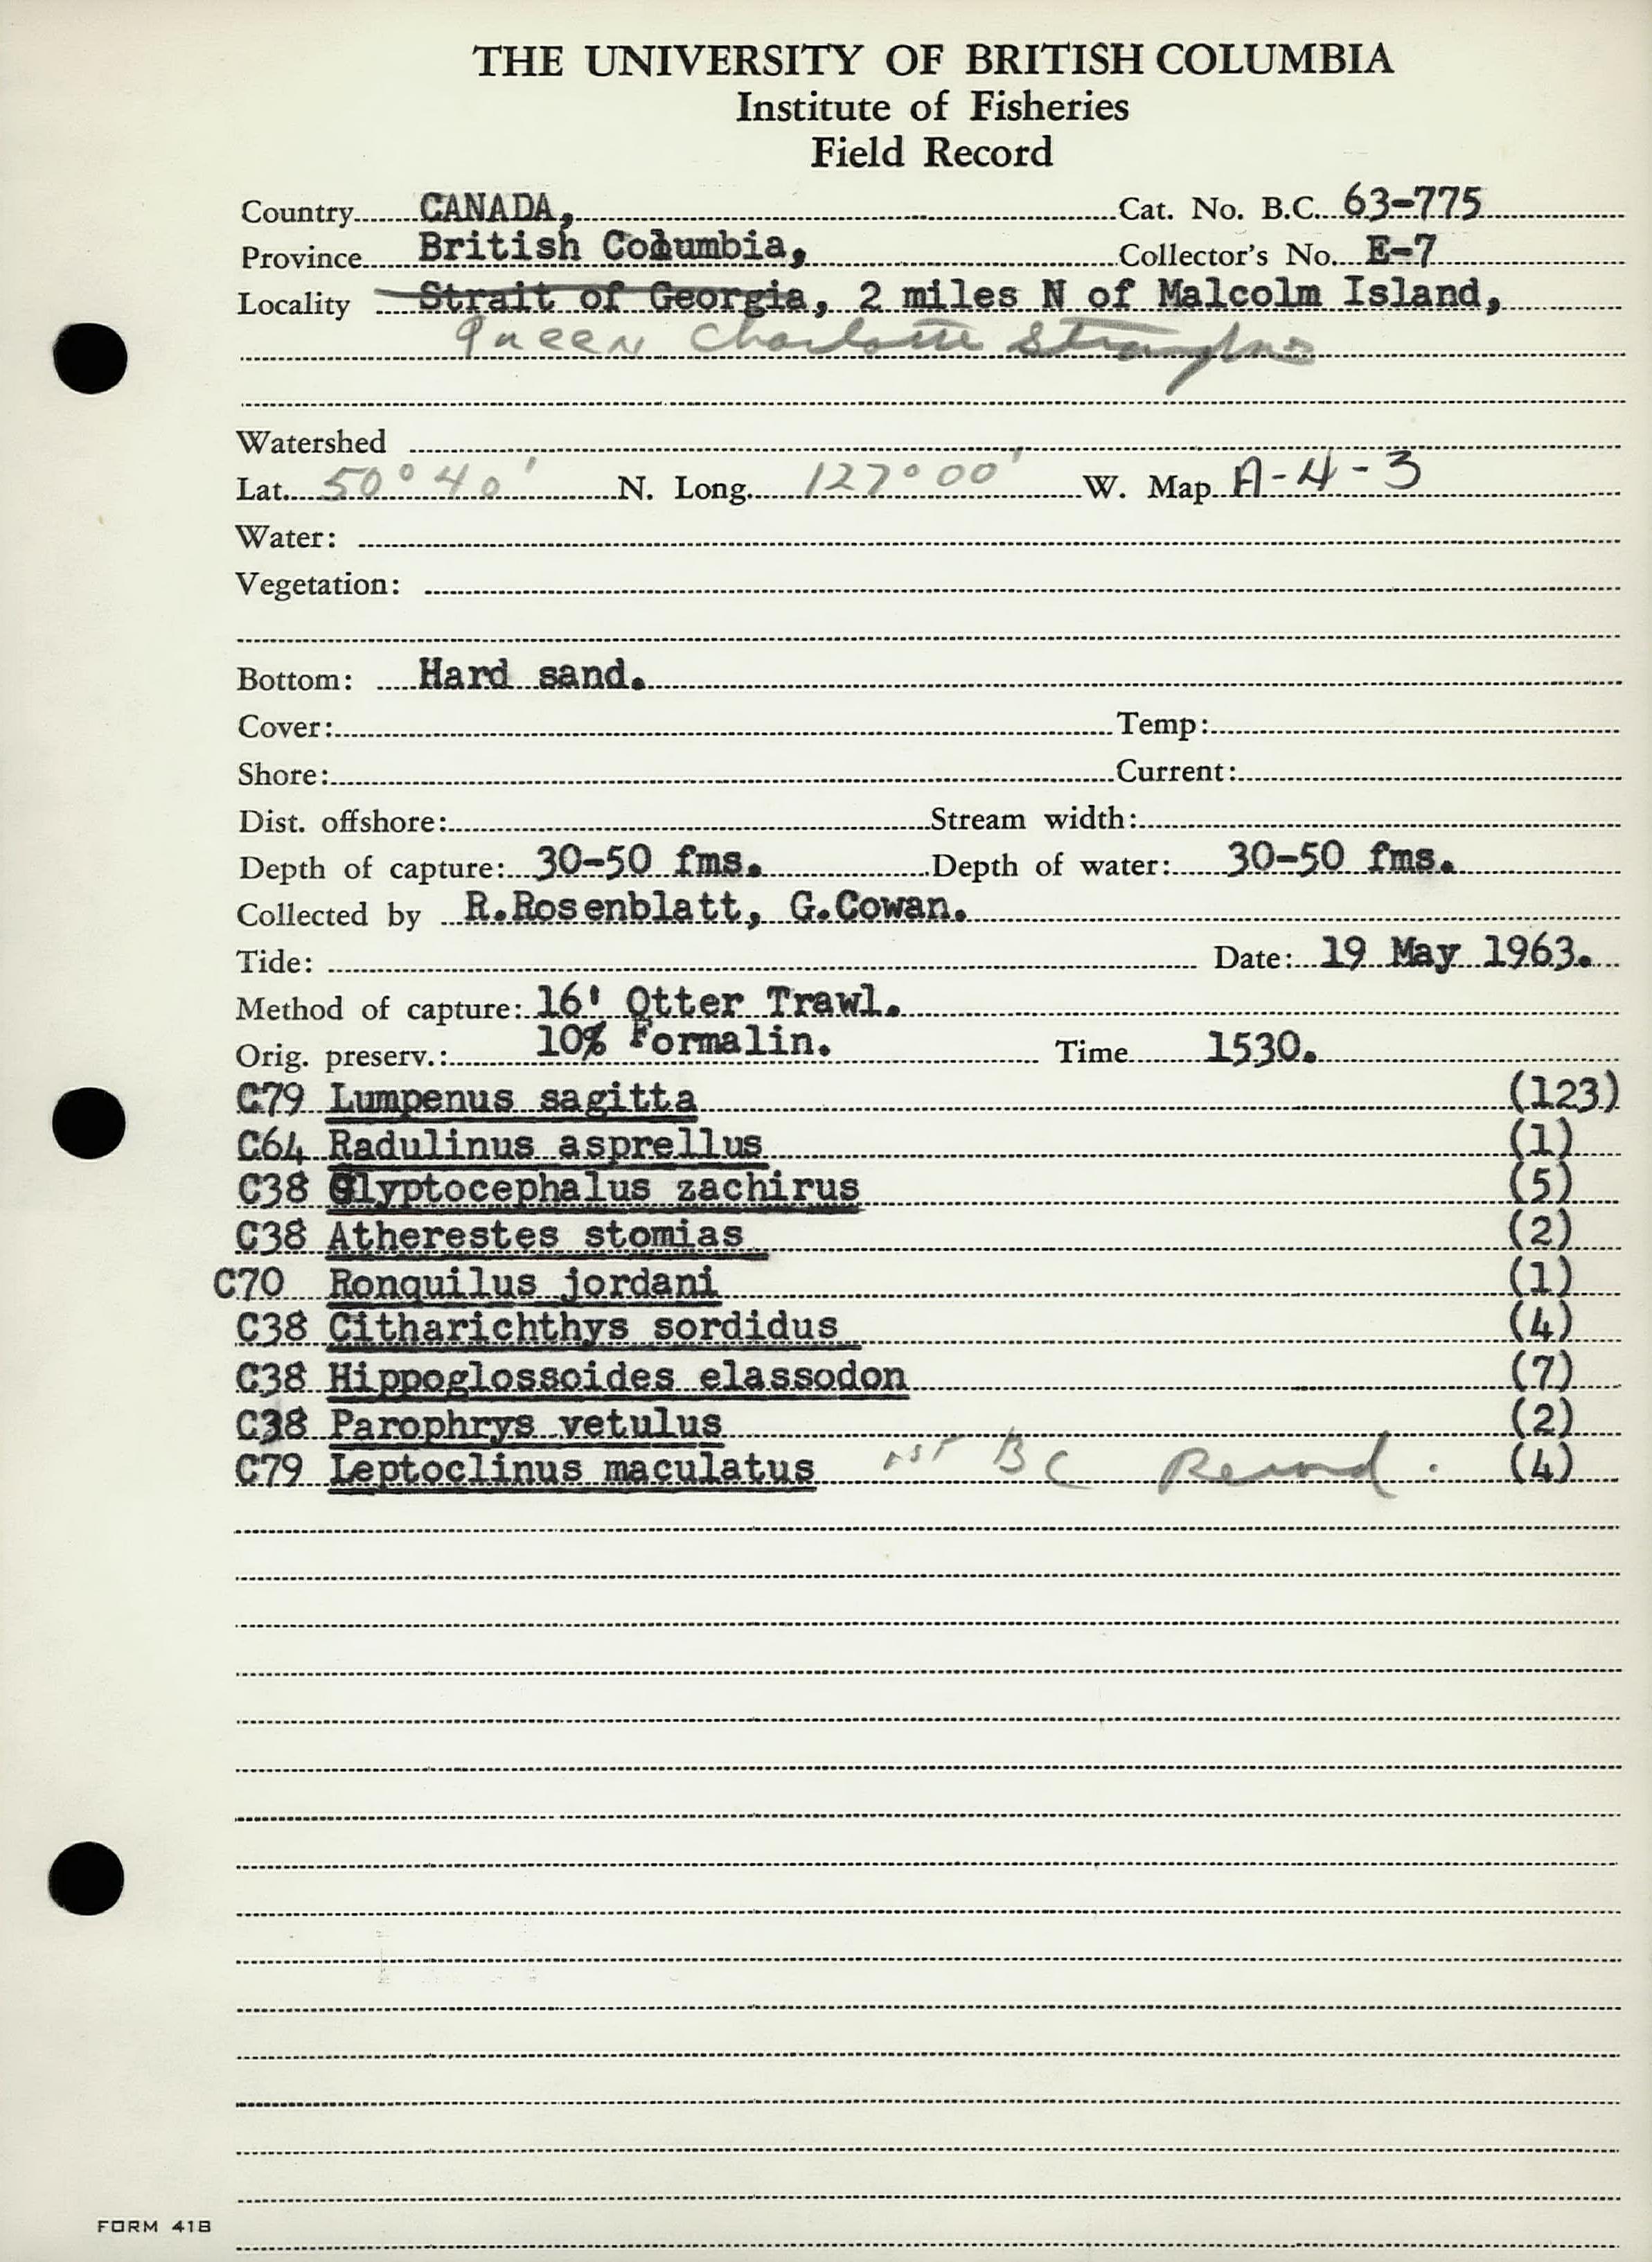 THE UNIVERSITY OF BRITISH COLUMBIA
Institute of Fisheries
Field Record
Country CANADA, Cat. No. B.C. 63-775
Province British Columbia, Collector's No. E-7
Locality Strait of Georgia, 2 miles N of Malcolm Island,
Queen Charlotte
Watershed
Lat. 50° 40' N. Long. 127° 00' W. Map A-4-3
Water:
Vegetation:
Bottom: Hard sand.
Cover: Temp:
Shore: Current:
Dist. offshore: Stream width:
Depth of capture: 30-50 fms. Depth of water: 30-50 fms.
Collected by R.Rosenblatt, G.Cowan.
Tide: Date: 19 May 1963.
Method of capture: 16' Otter Trawl.
Orig. preserv.: 10% Formalin. Time 1530.
C79 Lumpenus sagitta (123)
C64 Radulinus asprellus (1)
C38 Glyptocephalus zachirus (5)
C38 Atherestes stomias (2)
C70 Ronquilus jordani (1)
C38 Citharichthys sordidus (4)
C38 Hippoglossoides elassodon (7)
C38 Parophrys vetulus (2)
C79 Leptoclinus maculatus 1st BC Record. (4)
FORM 41B